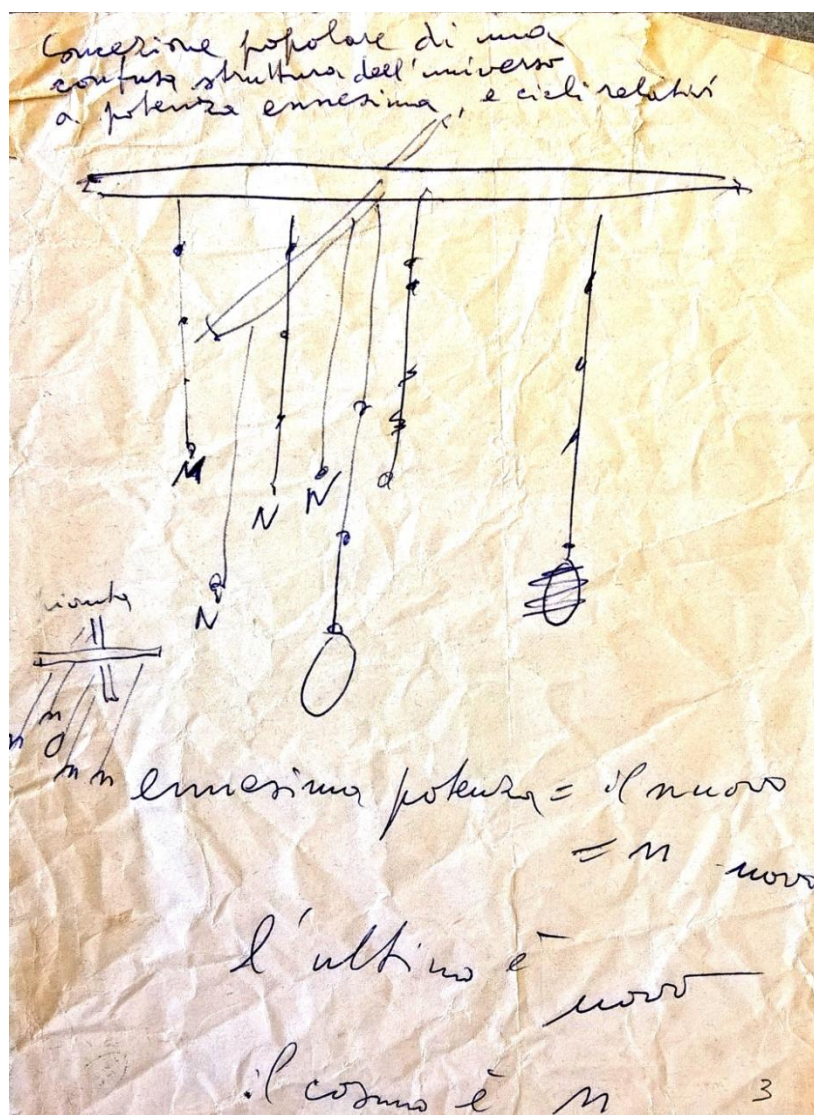 Concezione popolare di una
confusa struttura dell'universo
a potenza ennesima, e cicli relativi
M
N
N
N
n
n
O
n n
ennesima potenza = il nuovo
= n novo
l'ultimo è
novo
il cosmo è n
3